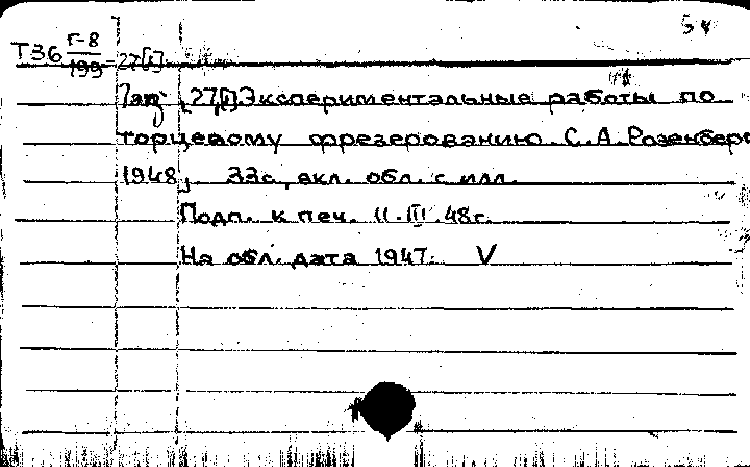 54
Т36 Г-8/199 - 27[1].
27[1] Экспериментальные работы по
торцевому фрезерованию. С.А. Розенберг
1948, 33с, вкл. обл. с илл.
Подп. к печ. 11.III.48г.
На обл. дата 1947. V